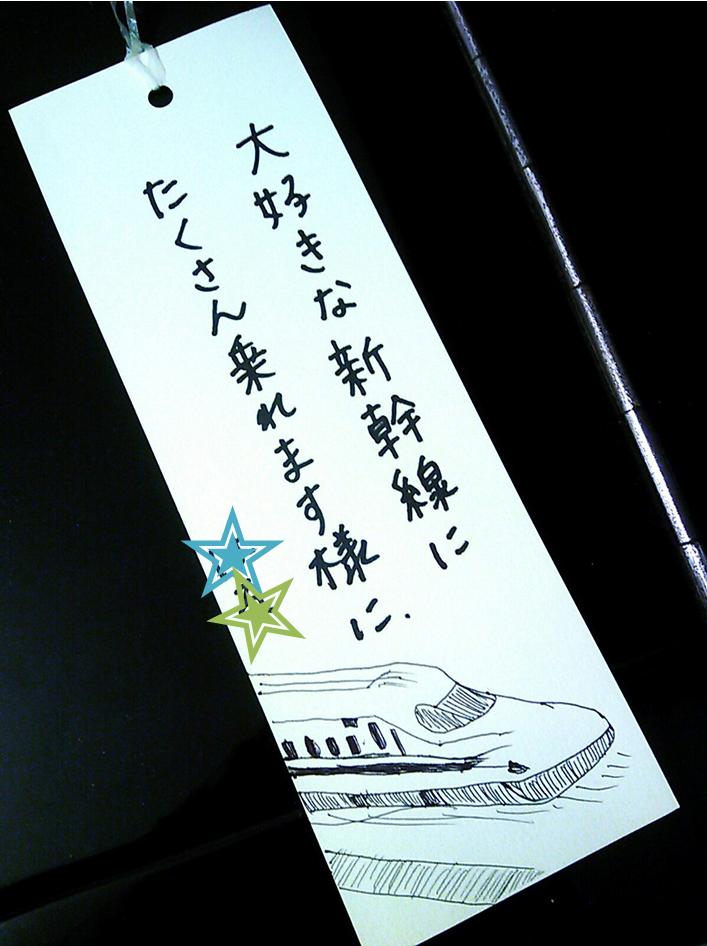 大好きな新幹線に
たくさん乗れます様に.